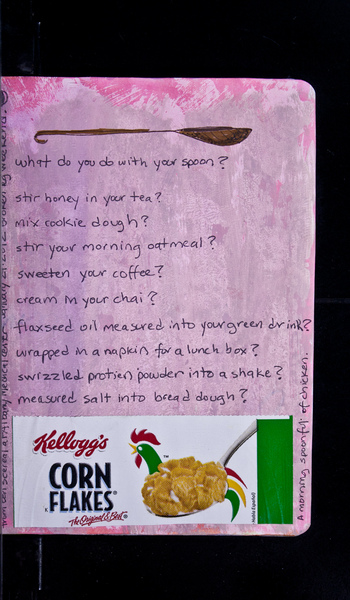 what do you do with your spoon?
stir honey in your tea?
mix cookie dough?
stir your morning oatmeal?
sweeten your coffee?
cream in your chai?
flaxseed oil measured into your green drink?
wrapped in a napkin for a lunch box?
swizzled protien powder into a shake?
measured salt into bread dough?
Kellogg's
CORN
FLAKES®
The Original & Best
A morning spoonful of chicken.